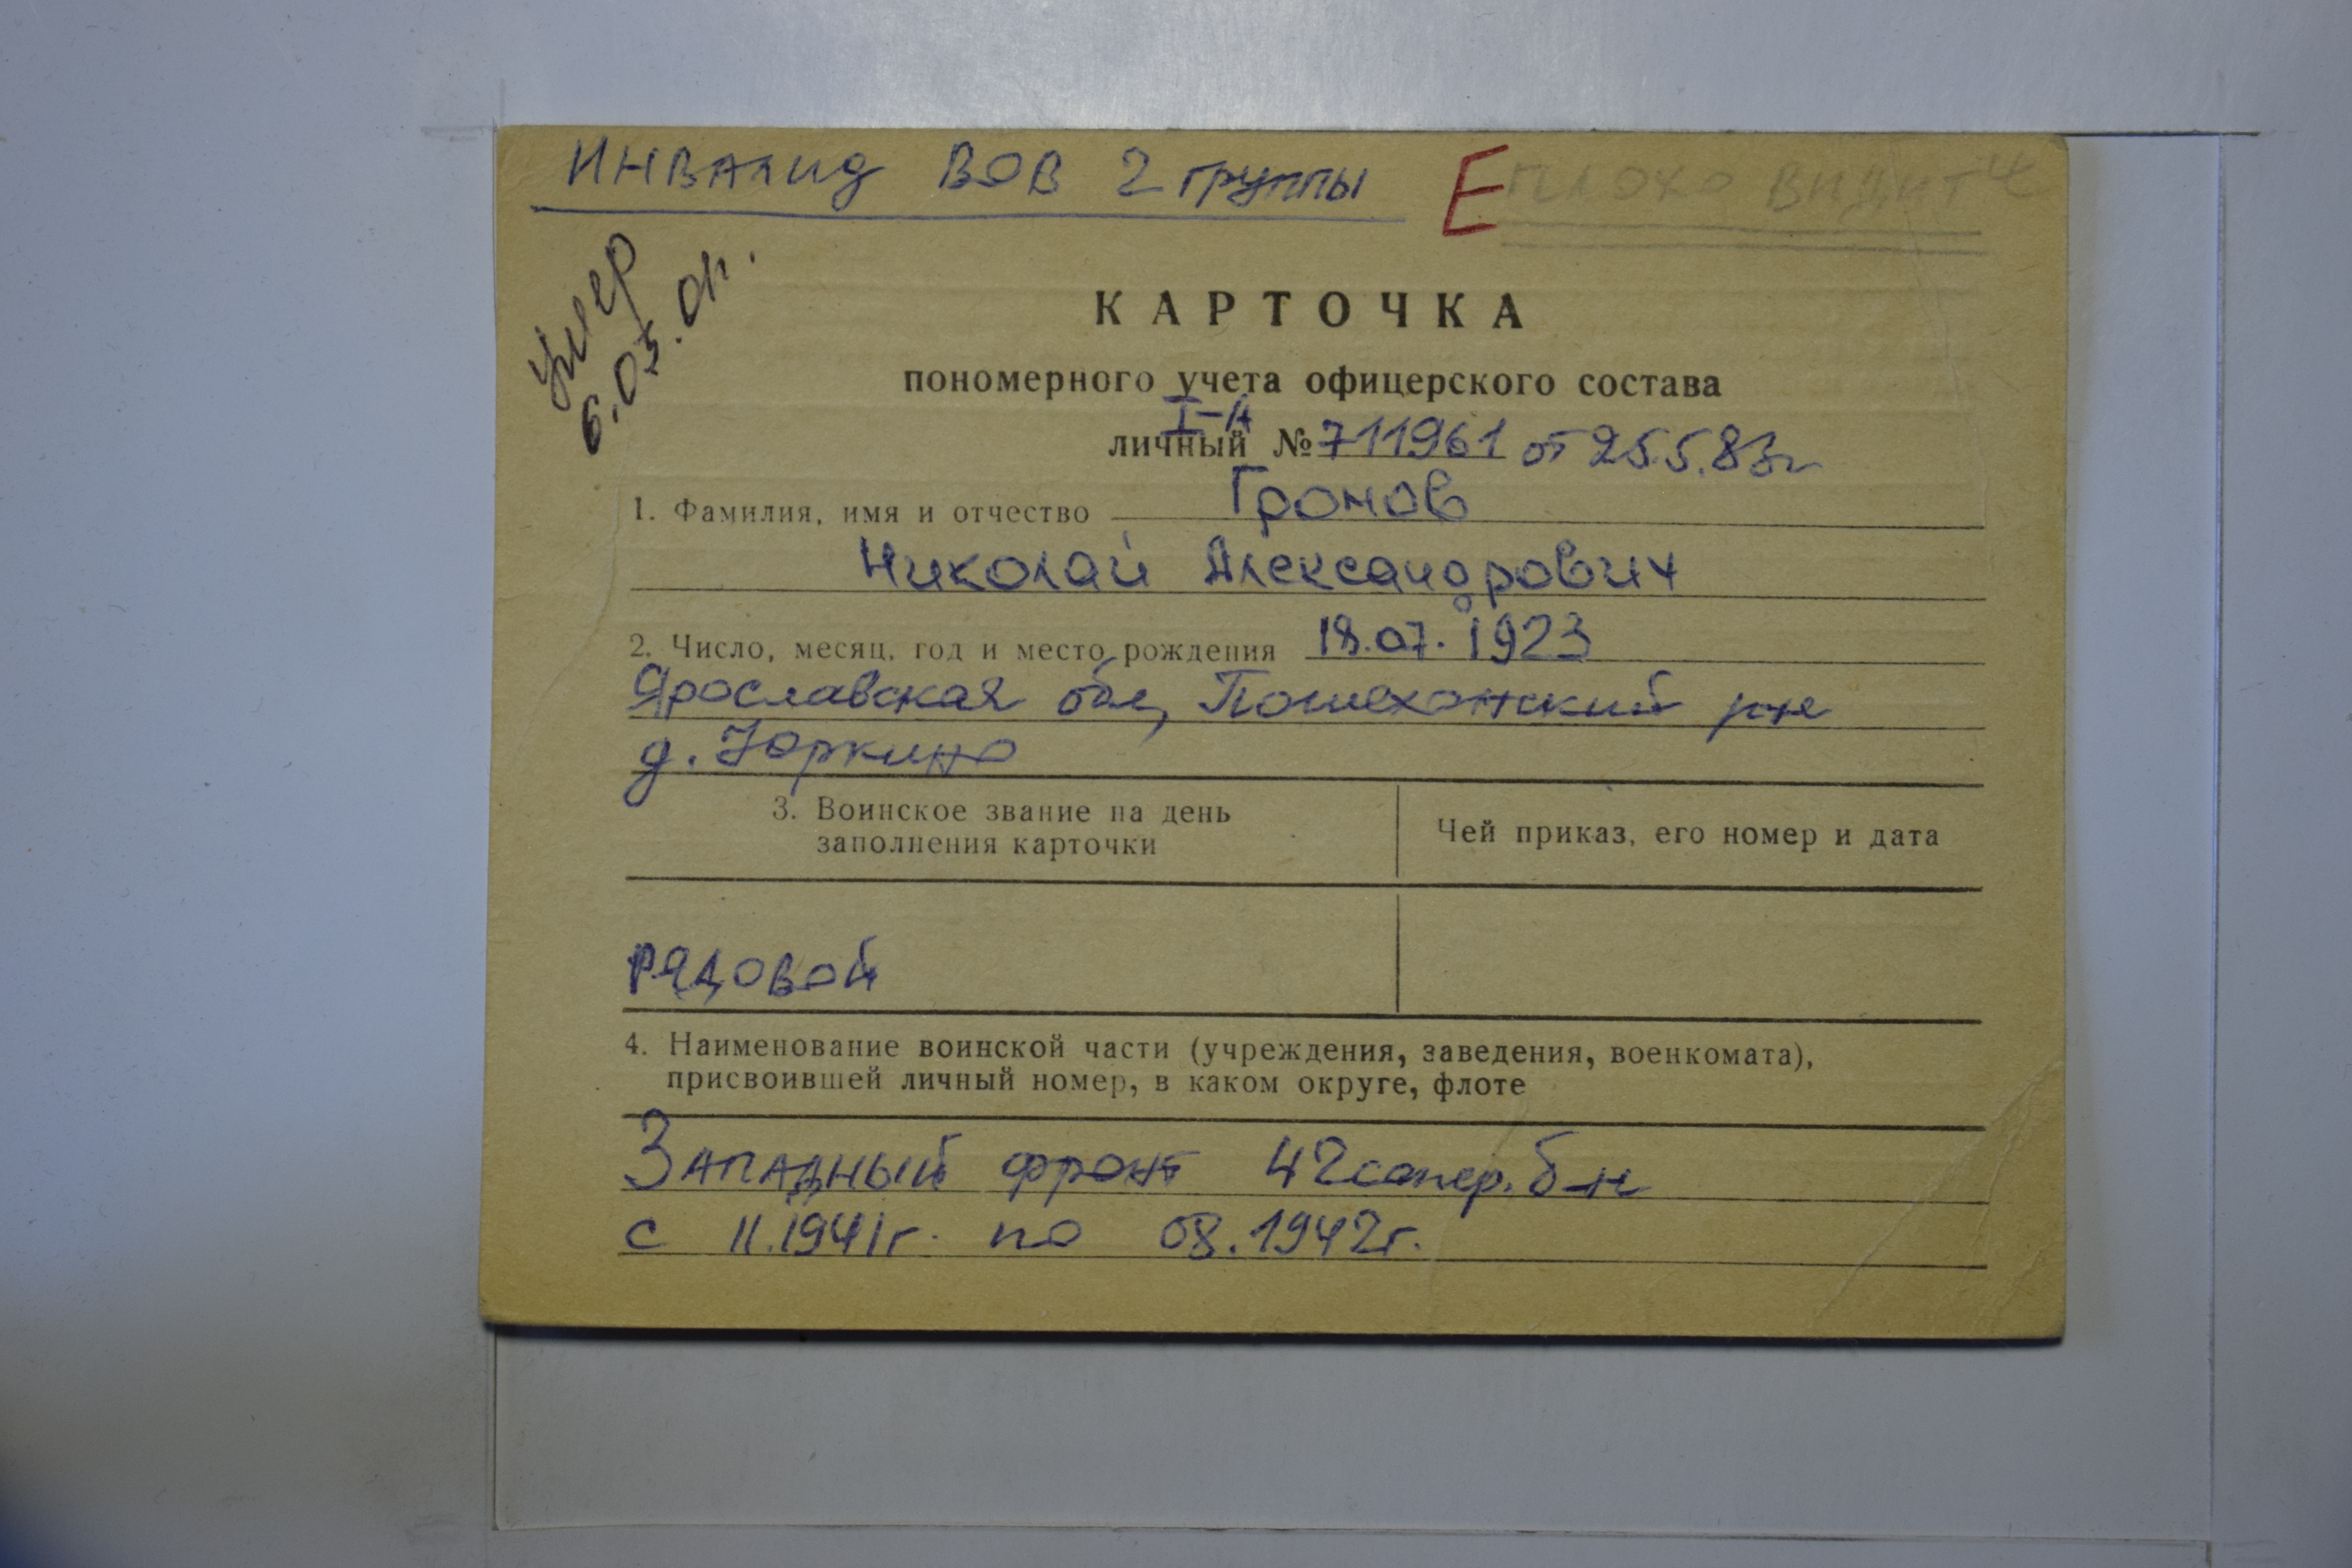 Инвалид ВОВ 2 группы Е плохо видит
умер
6.03.01г.
КАРТОЧКА
пономерного учета офицерского состава
I-Н
личный № 711961 от 25.5.83г
1. Фамилия, имя и отчество Громов
Николай Александрович
2. Число, месяц, год и место рождения 18.07.1923
Ярославская обл, Пошехонский р-не
д. Юркино
3. Воинское звание на день
заполнения карточки
Чей приказ, его номер и дата
РЯДОВОЙ
4. Наименование воинской части (учреждения, заведения, военкомата),
присвоившей личный номер, в каком округе, флоте
Западный фронт 42 сапер. б-н
с 11.1941г. по 08.1942г.